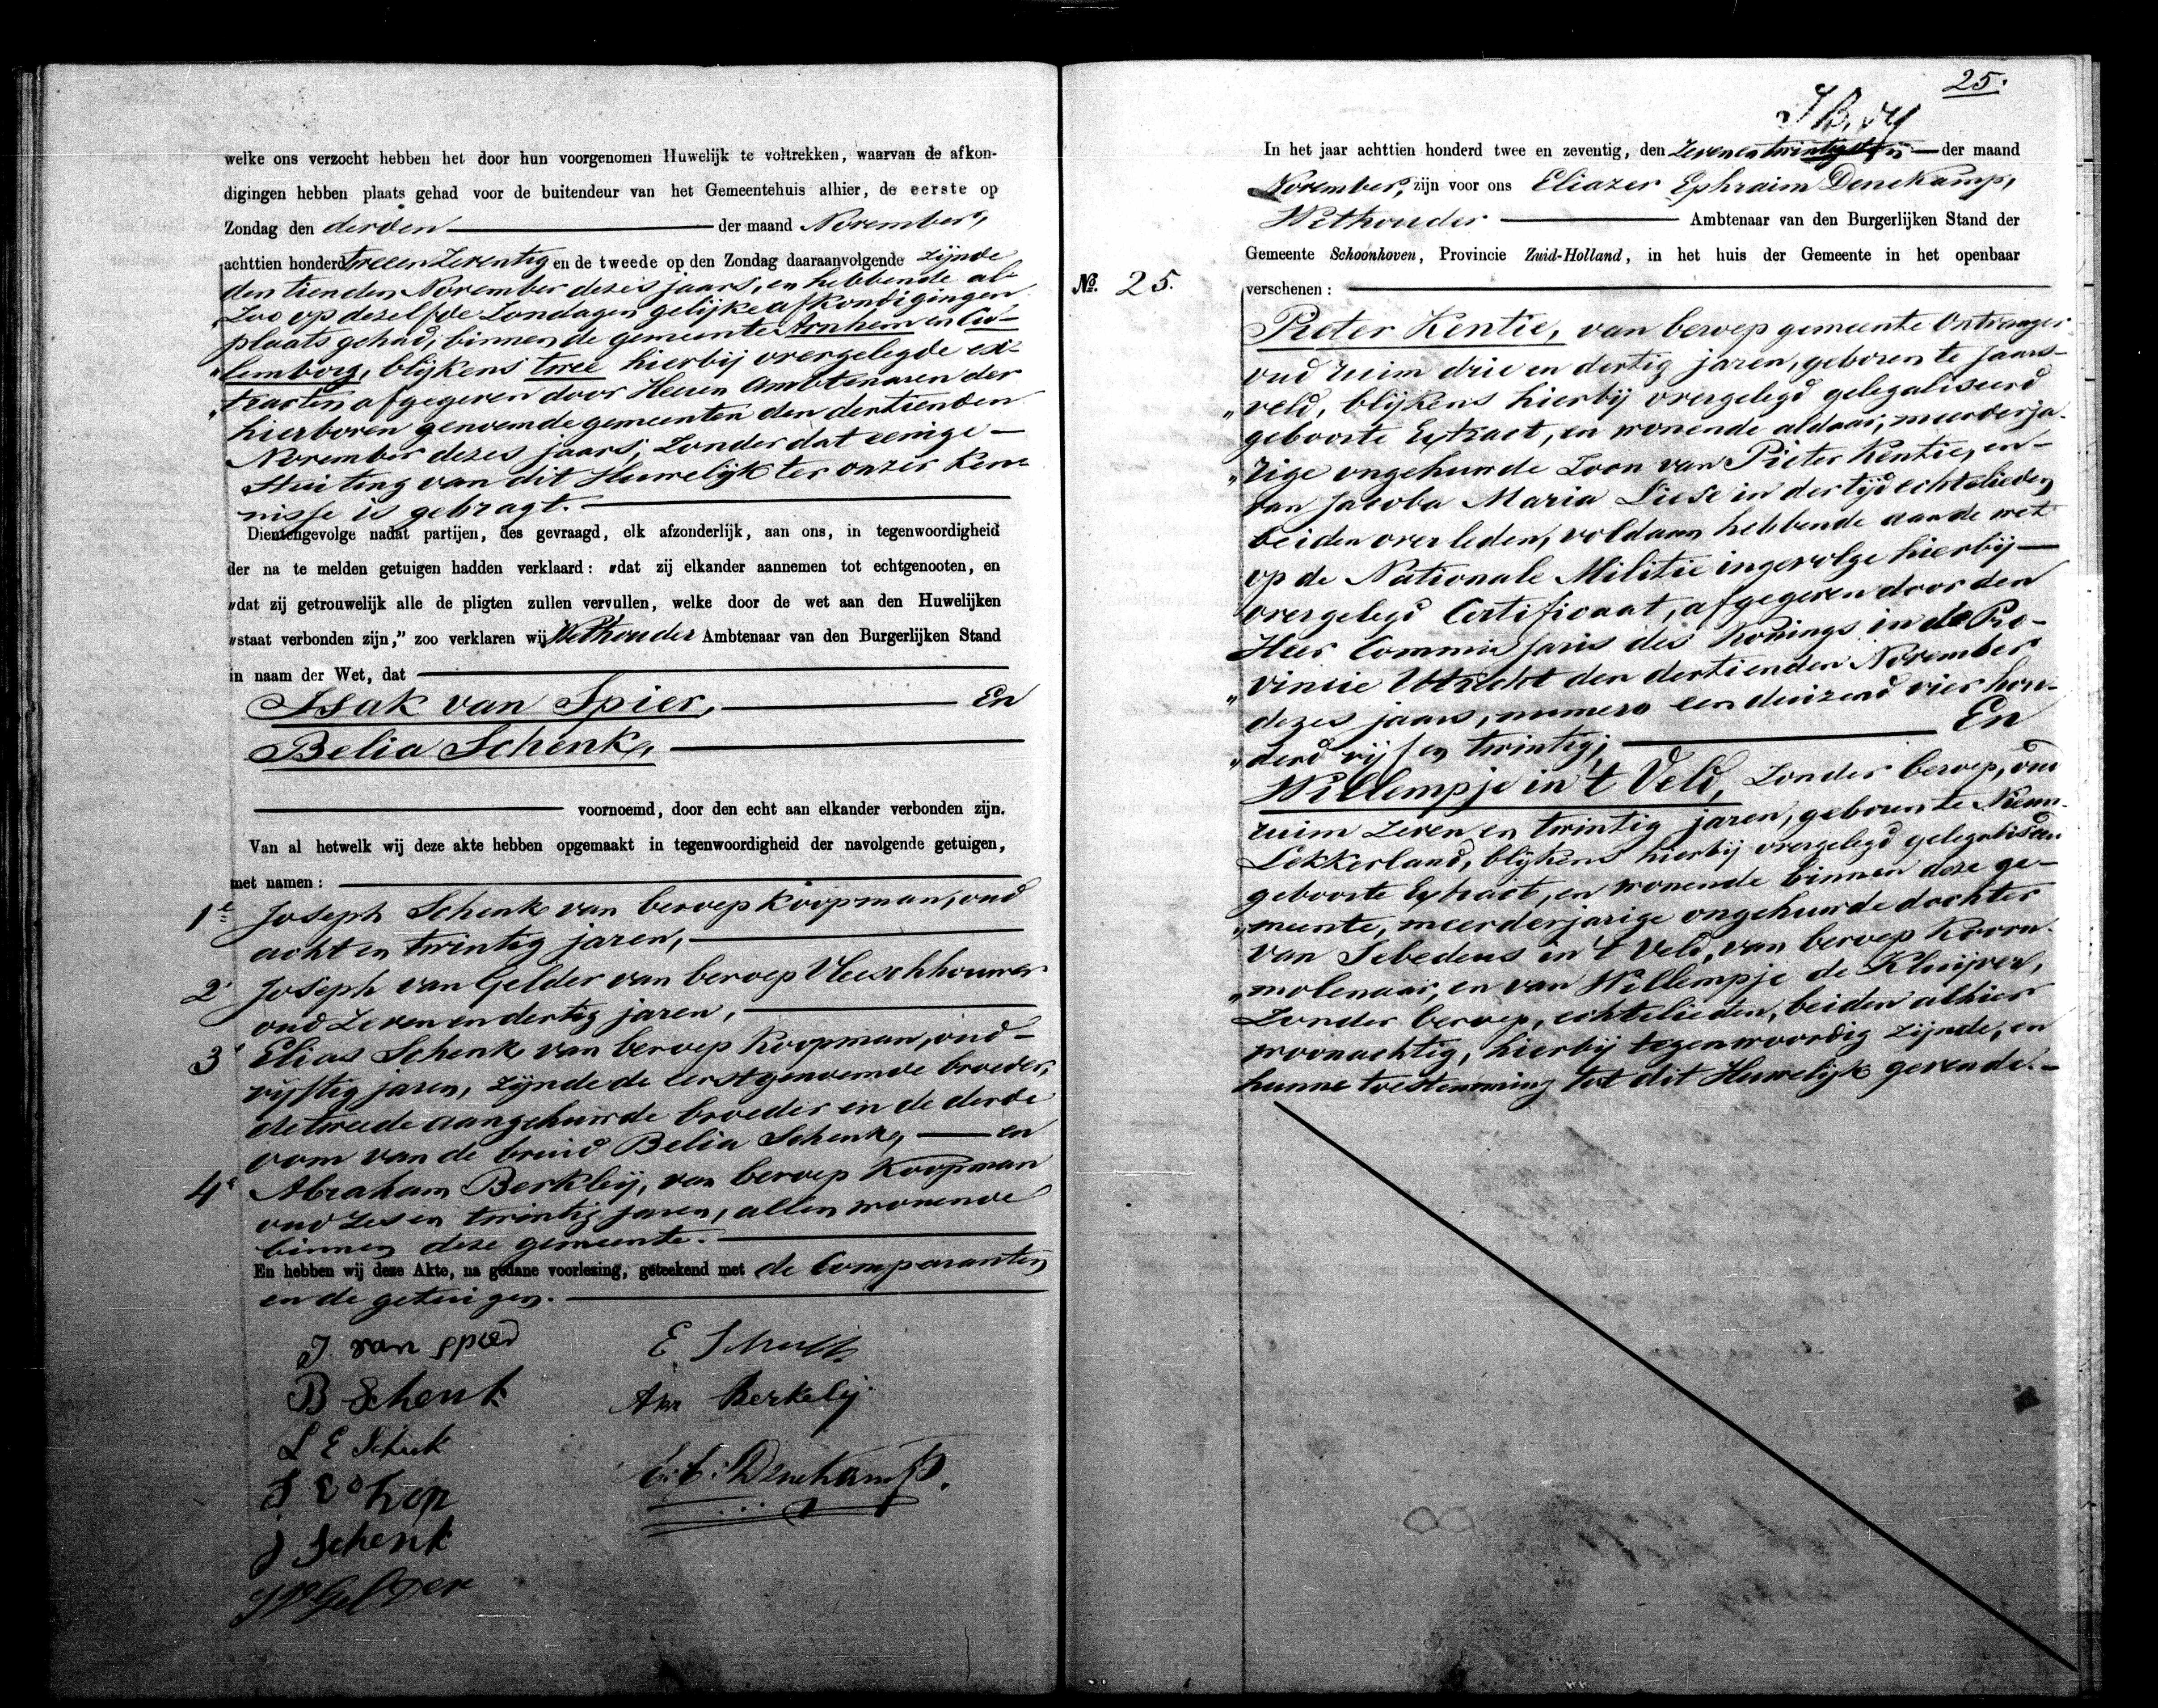 welke ons verzocht hebben het door hun voorgenomen Huwelijk te voltrekken, waarvan de afkon-
digingen hebben plaats gehad voor de buitendeur van het Gemeentehuis alhier, de eerste op
Zondag den derden der maand November,
achttien honderd twee en Zeventig en de tweede op den Zondag daaraanvolgende zijnde
den tienden November dezes jaars, en hebbende al-
"zoo op dezelfde Zondagen gelijke afkondigingen
plaats gehad, binnen de gemeente Arnhem en Cu-
"lemborg, blijkens twee hierbij overgelegde ex-
"tracten afgegeven door Heeren Ambtenaren der
hierboven genoemde gemeenten den dertienden
November dezes jaars, zonder dat eenige
stuiting van dit Huwelijk ter onzer ken-
nisse is gebragt.
Dientengevolge nadat partijen, des gevraagd, elk afzonderlijk, aan ons, in tegenwoordigheid
der na te melden getuigen hadden verklaard: "dat zij elkander aannemen tot echtgenooten, en
"dat zij getrouwelijk alle de pligten zullen vervullen, welke door de wet aan den Huwelijken
"staat verbonden zijn," zoo verklaren wij Wethouder Ambtenaar van den Burgerlijken Stand
in naam der Wet, dat
Isak van Spier, En
Belia Schenk,
voornoemd, door den echt aan elkander verbonden zijn.
Van al hetwelk wij deze akte hebben opgemaakt in tegenwoordigheid der navolgende getuigen,
met namen:
1e Joseph Schenk van beroep Koopman, oud
acht en twintig jaren,
2e Joseph van Gelder van beroep Vleeschhouwer
oud zeven en dertig jaren,
3e Elias Schenk van beroep Koopman, oud
vijftig jaren, zijnde de eerstgenoemde broeder,
de tweede aangehuwde broeder en de derde
oom van de bruid Belia Schenk, en
4e Abraham Berkleij, van beroep Koopman
oud zes en twintig jaren, allen wonende
binnen deze gemeente.
En hebben wij deze Akte, na gedane voorlezing, geteekend met de Comparanten
en de getuigen.
J van spier
B Schenk
L E Schenk
J Schenk
J v Gelder
E Schenk
Abr Berkelij
E: E: Denekamp.
25.
In het jaar achttien honderd twee en zeventig, den Zevenentwintigsten der maand
November, zijn voor ons Eliazer Ephraim Denekamp,
Wethouder Ambtenaar van den Burgerlijken Stand der
Gemeente Schoonhoven, Provincie Zuid-Holland, in het huis der Gemeente in het openbaar
No. 25. verschenen:
Pieter Kentie, van beroep gemeente Ontvanger
oud ruim drie en dertig jaren, geboren te Jaars-
"veld, blijkens hierbij overgelegd gelegaliseerd
geboorte Extract, en wonende aldaar, meerderja-
"rige ongehuwde Zoon van Pieter Kentie, en
van Jacoba Maria Liese in der tijd echtelieden
beiden overleden, voldaan hebbende aan de wet
op de Nationale Militie ingevolge hierbij
overgelegd Certificaat, afgegeven door den
Heer Commissaris des Konings in de Pro-
"vincie Utrecht den dertienden November
dezes jaars, numero een duizend vier hon-
"derd vijf en twintig; En
Willempje in 't Veld, zonder beroep, oud
ruim zeven en twintig jaren, geboren te Nieuw-
Lekkerland, blijkens hierbij overgelegd gelegaliseerd
geboorte Extract, en wonende binnen deze ge-
"meente, meerderjarige ongehuwde dochter
van Sebedeus in 't Veld, van beroep Koorn-
"molenaar, en van Willempje de Kluijver,
zonder beroep, echtelieden, beiden alhier
woonachtig, hierbij tegenwoordig zijnde, en
hunne toestemming tot dit Huwelijk gevende.